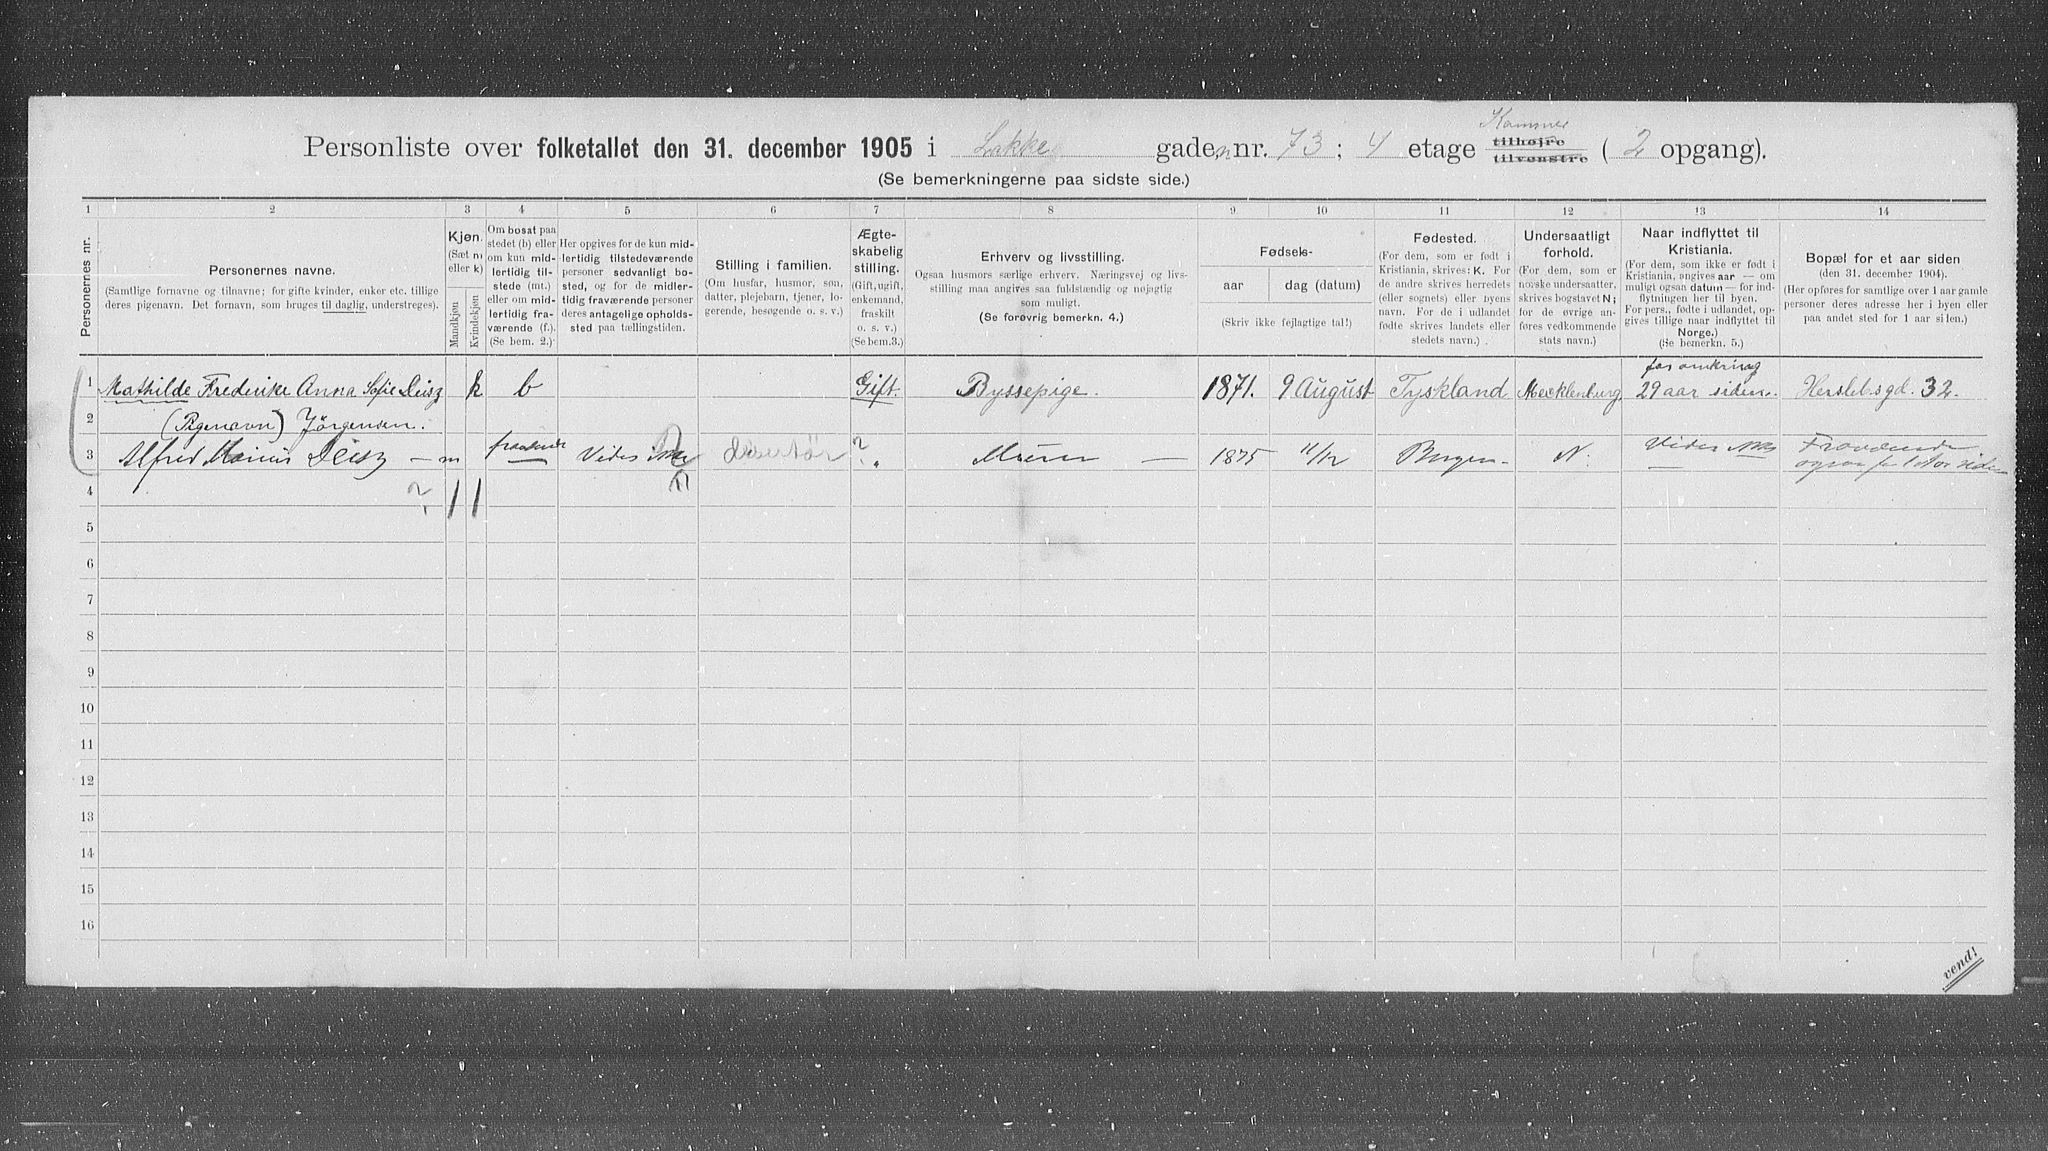 Personliste over folketallet den 31. december 1905 i Lakke gaden nr. 73 ; 4 etage Kammer tilhøjre tilvenstre ( 2 opgang).
(Se bemerkningerne paa sidste side.)
1 2 3 4 5 6 7 8 9 10 11 12 13 14
Personernes nr.
Personernes navne.
(Samtlige fornavne og tilnavne; for gifte kvinder, enker etc. tillige
deres pigenavn. Det fornavn, som bruges til daglig, understreges).
Kjøn.
(Sæt m
eller k)
Mandkjøn
Kvindekjøn
Om bosat paa
stedet (b) eller
om kun mid-
lertidig til-
stede (mt.)
eller om mid-
lertidig fra-
værende (f.).
(Se bem. 2.)
Her opgives for de kun mid-
lertidig tilstedeværende
personer sedvanligt bo-
sted, og for de midler-
tidig fraværende personer
deres antagelige opholds-
sted paa tællingstiden.
Stilling i familien.
(Om husfar, husmor, søn,
datter, plejebarn, tjener, lo-
gerende, besøgende o. s. v.)
Ægte-
skabelig
stilling.
(Gift, ugift,
enkemand,
fraskilt
o. s. v.)
(Se bem.3.)
Erhverv og livsstilling.
Ogsaa husmors særlige erhverv. Næringsvej og livs-
stilling maa angives saa fuldstændig og nøjagtig
som muligt.
(Se forøvrig bemerkn. 4.)
Fødsels-
aar dag (datum)
(Skriv ikke fejlagtige tal!)
Fødested.
(For dem, som er født i
Kristiania, skrives: K. For
de andre skrives herredets
(eller sognets) eller byens
navn. For de i udlandet
fødte skrives landets eller
stedets navn.)
Undersaatligt
forhold.
(For dem, som er
norske undersaatter,
skrives bogstavet N;
for de øvrige an-
føres vedkommende
stats navn.)
Naar indflyttet til
Kristiania.
(For dem, som ikke er født i
Kristiania, angives aar — om
muligt ogsaa datum — for ind-
flytningen her til byen.
For pers., fødte i udlandet, op-
gives tillige naar indflyttet til
Norge.)
(Se bemerkn. 5.)
Bopæl for et aar siden
(den 31. december 1904).
(Her opføres for samtlige over 1 aar gamle
personer deres adresse her i byen eller
paa andet sted for 1 aar siden.)
1 Mathilde Frederike Anna Sofie Deisz k b Gift. Byssepige. 1871. 9 August Tyskland Mecklenburg. for omkring 29 aar siden. Herslebsgd. 32.
2 (Pigenavn) Jörgensen.
3 Alfred Marius Deisz — m Vides ikke ? " Murer — 1875 11/12 Bergen N. Vides ikke
4 ? 1 1
5
6
7
8
9
10
11
12
13
14
15
16
vend!